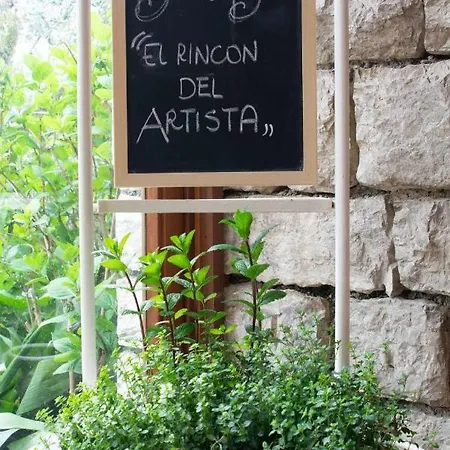 “EL RINCON
DEL
ARTISTA”